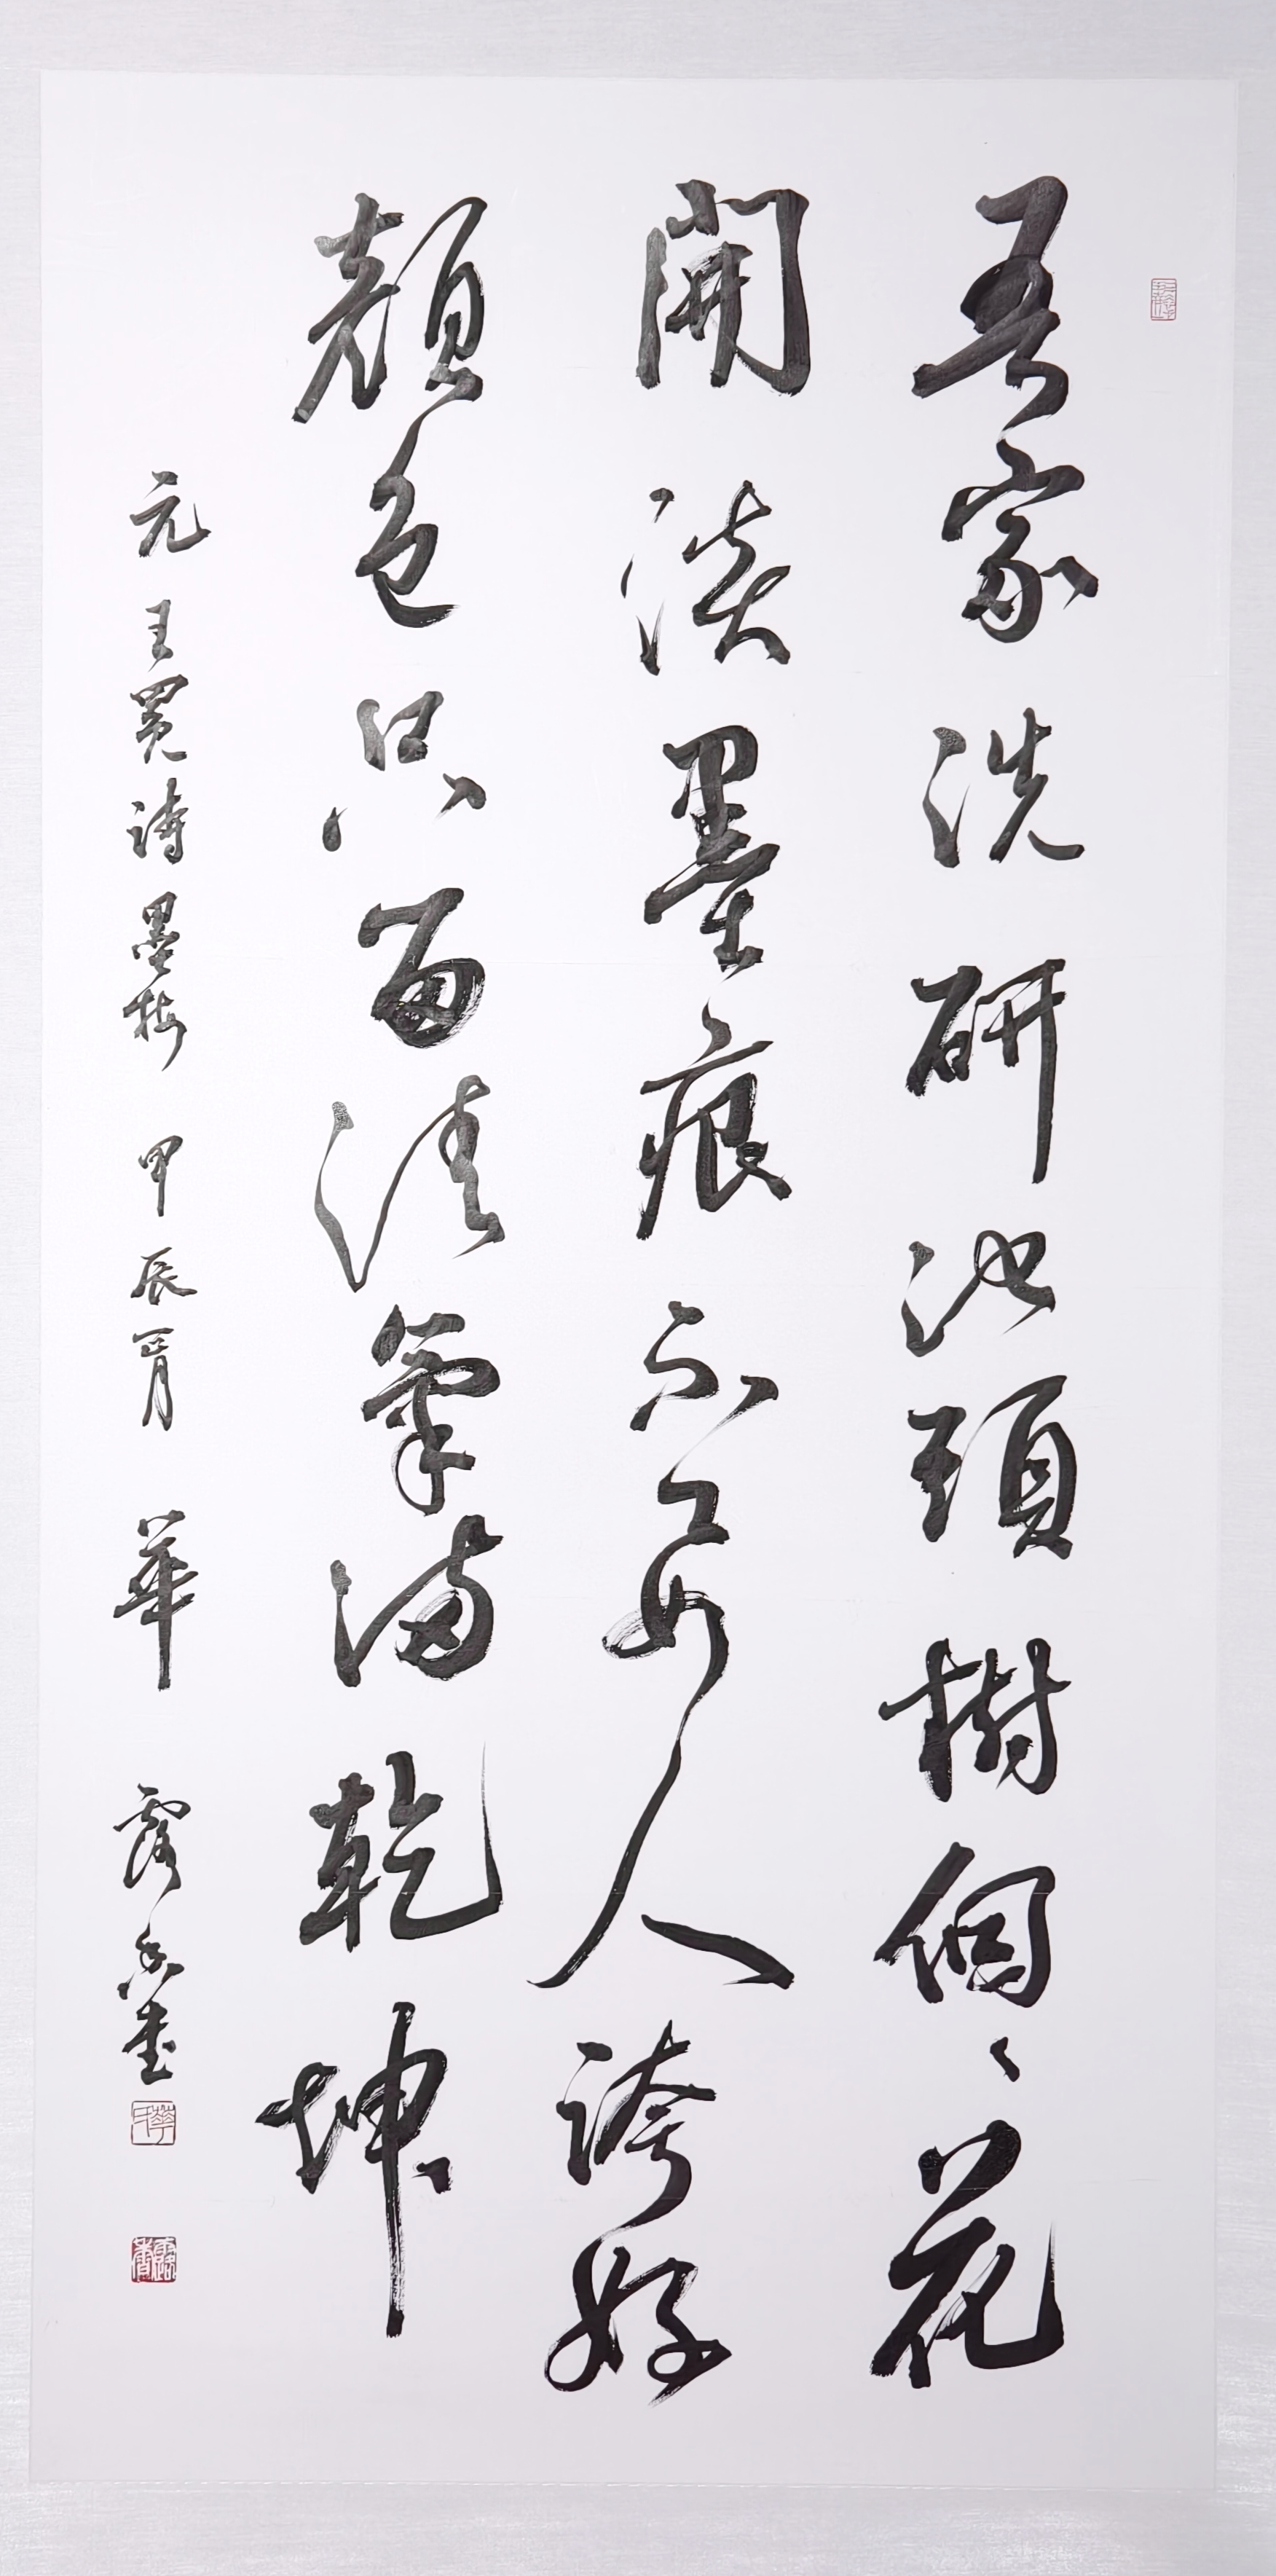 吾家洗研池頭樹個々花
開淡墨痕不要人誇好
顏色只留清氣滿乾坤
元王冕詩墨梅 甲辰正月 華露香書